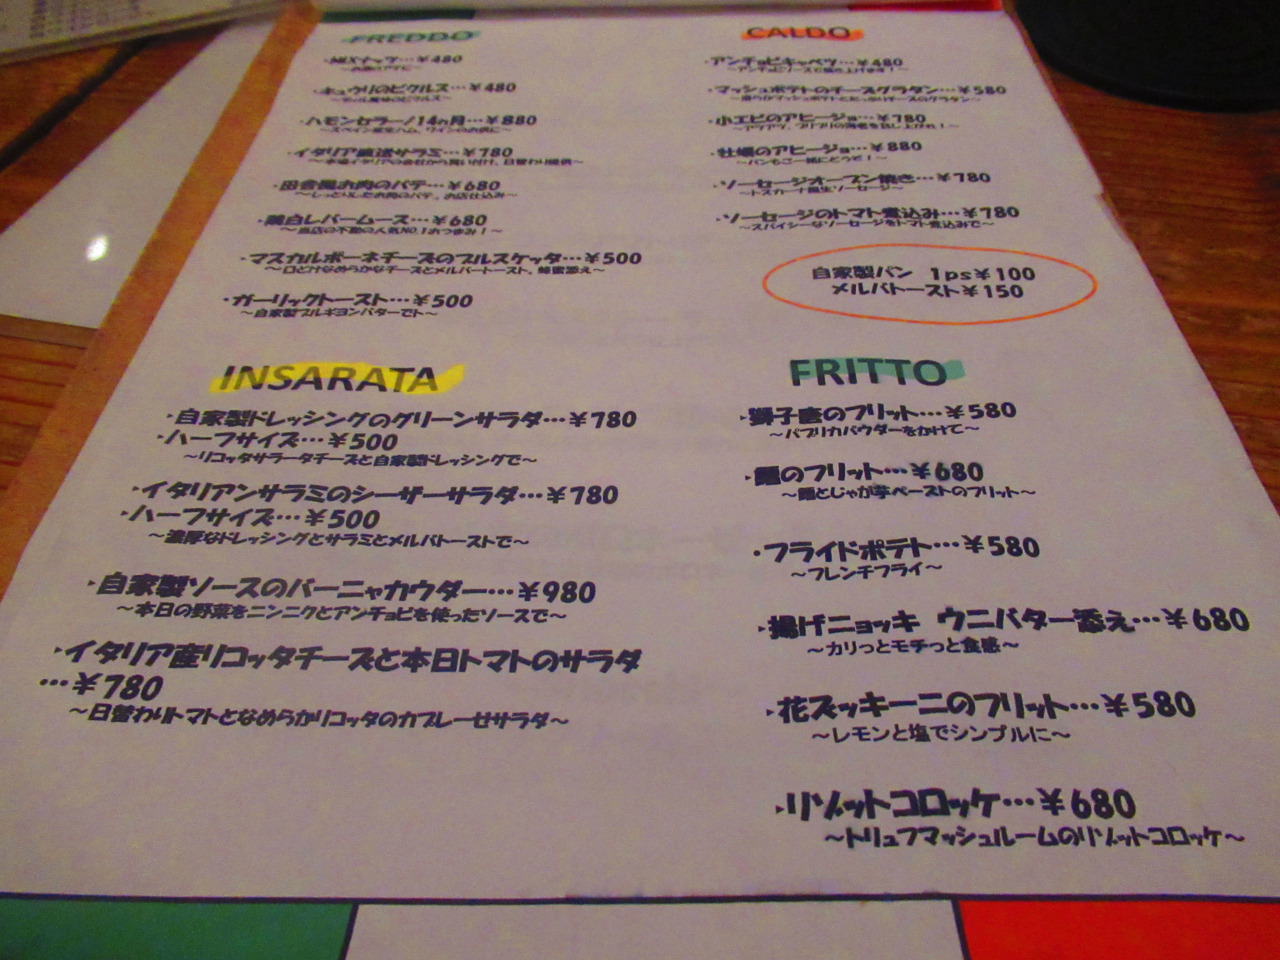 FREDDO
・MIXナッツ…¥480
～お酒のアテに～
・キュウリのピクルス…¥480
～ディル風味のピクルス～
・ハモンセラーノ14ヵ月…¥880
～スペイン産生ハム、ワインのお供に～
・イタリア直送サラミ…¥780
～本場イタリアの会社から買い付け、日替わり提供～
・田舎風お肉のパテ…¥680
～しっとりしたお肉のパテ、お店仕込み～
・美白レバームース…¥680
～当店の不動の人気NO.1おつまみ！～
・マスカルポーネチーズのブルスケッタ…¥500
～口どけなめらかなチーズとメルバトースト、蜂蜜添え～
・ガーリックトースト…¥500
～自家製ブルギヨンバターで～
INSARATA
・自家製ドレッシングのグリーンサラダ…¥780
・ハーフサイズ…¥500
～リコッタサラータチーズと自家製ドレッシングで～
・イタリアンサラミのシーザーサラダ…¥780
・ハーフサイズ…¥500
～濃厚なドレッシングとサラミとメルバトーストで～
・自家製ソースのバーニャカウダー…¥980
～本日の野菜をニンニクとアンチョビを使ったソースで～
・イタリア産リコッタチーズと本日トマトのサラダ
…¥780
～日替わりトマトとなめらかリコッタのカプレーゼサラダ～
CALDO
・アンチョビキャベツ…¥480
～アンチョビソースで召し上げます！～
・マッシュポテトのチーズグラタン…¥580
・小エビのアヒージョ…¥780
～アツアツ、プリプリの海老を召し上がれ！～
・牡蠣のアヒージョ…¥880
～パンもご一緒にどうぞ！～
・ソーセージオーブン焼き…¥780
～トスカーナ風生ソーセージ～
・ソーセージのトマト煮込み…¥780
～スパイシーなソーセージをトマト煮込みで～
自家製パン 1ps¥100
メルバトースト¥150
FRITTO
・獅子唐のフリット…¥580
～パプリカパウダーをかけて～
・鱈のフリット…¥680
～鱈とじゃが芋ペーストのフリット～
・フライドポテト…¥580
～フレンチフライ～
・揚げニョッキ ウニバター添え…¥680
～カリっとモチっと食感～
・花ズッキーニのフリット…¥580
～レモンと塩でシンプルに～
・リゾットコロッケ…¥680
～トリュフマッシュルームのリゾットコロッケ～